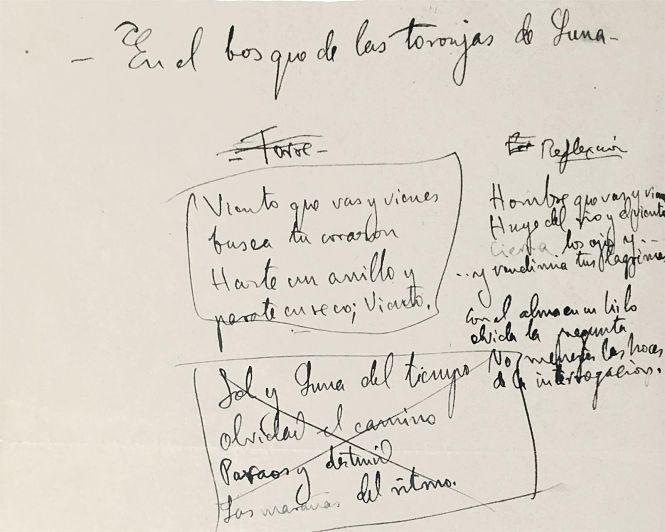 - En el bosque de las toronjas de Luna -
= Torre -
Viento que vas y vienes
busca tu corazon
Hazte un anillo y
parate en seco; Viento.
Sol y Luna del tiempo
olvidad el camino
Paraos y destruid
Las marañas del ritmo.
Reflexión
Hombre que vas y vienes
Huye del rio y el viento
Cierra los ojos y ...
... y vendimia tus lagrimas
Con el alma en un hilo
olvida la pregunta
No menejes las hoces
de la interrogacion.